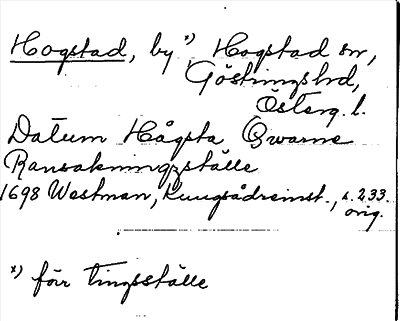 Hogstad, by *) Hogstad sn,
Göstringshd,
Österg. l.
Datum Hågsta Qwarne
Ransakningzställe
1698 Westman, Kungsådreinst., s. 233.
orig.
*) förr tingsställe